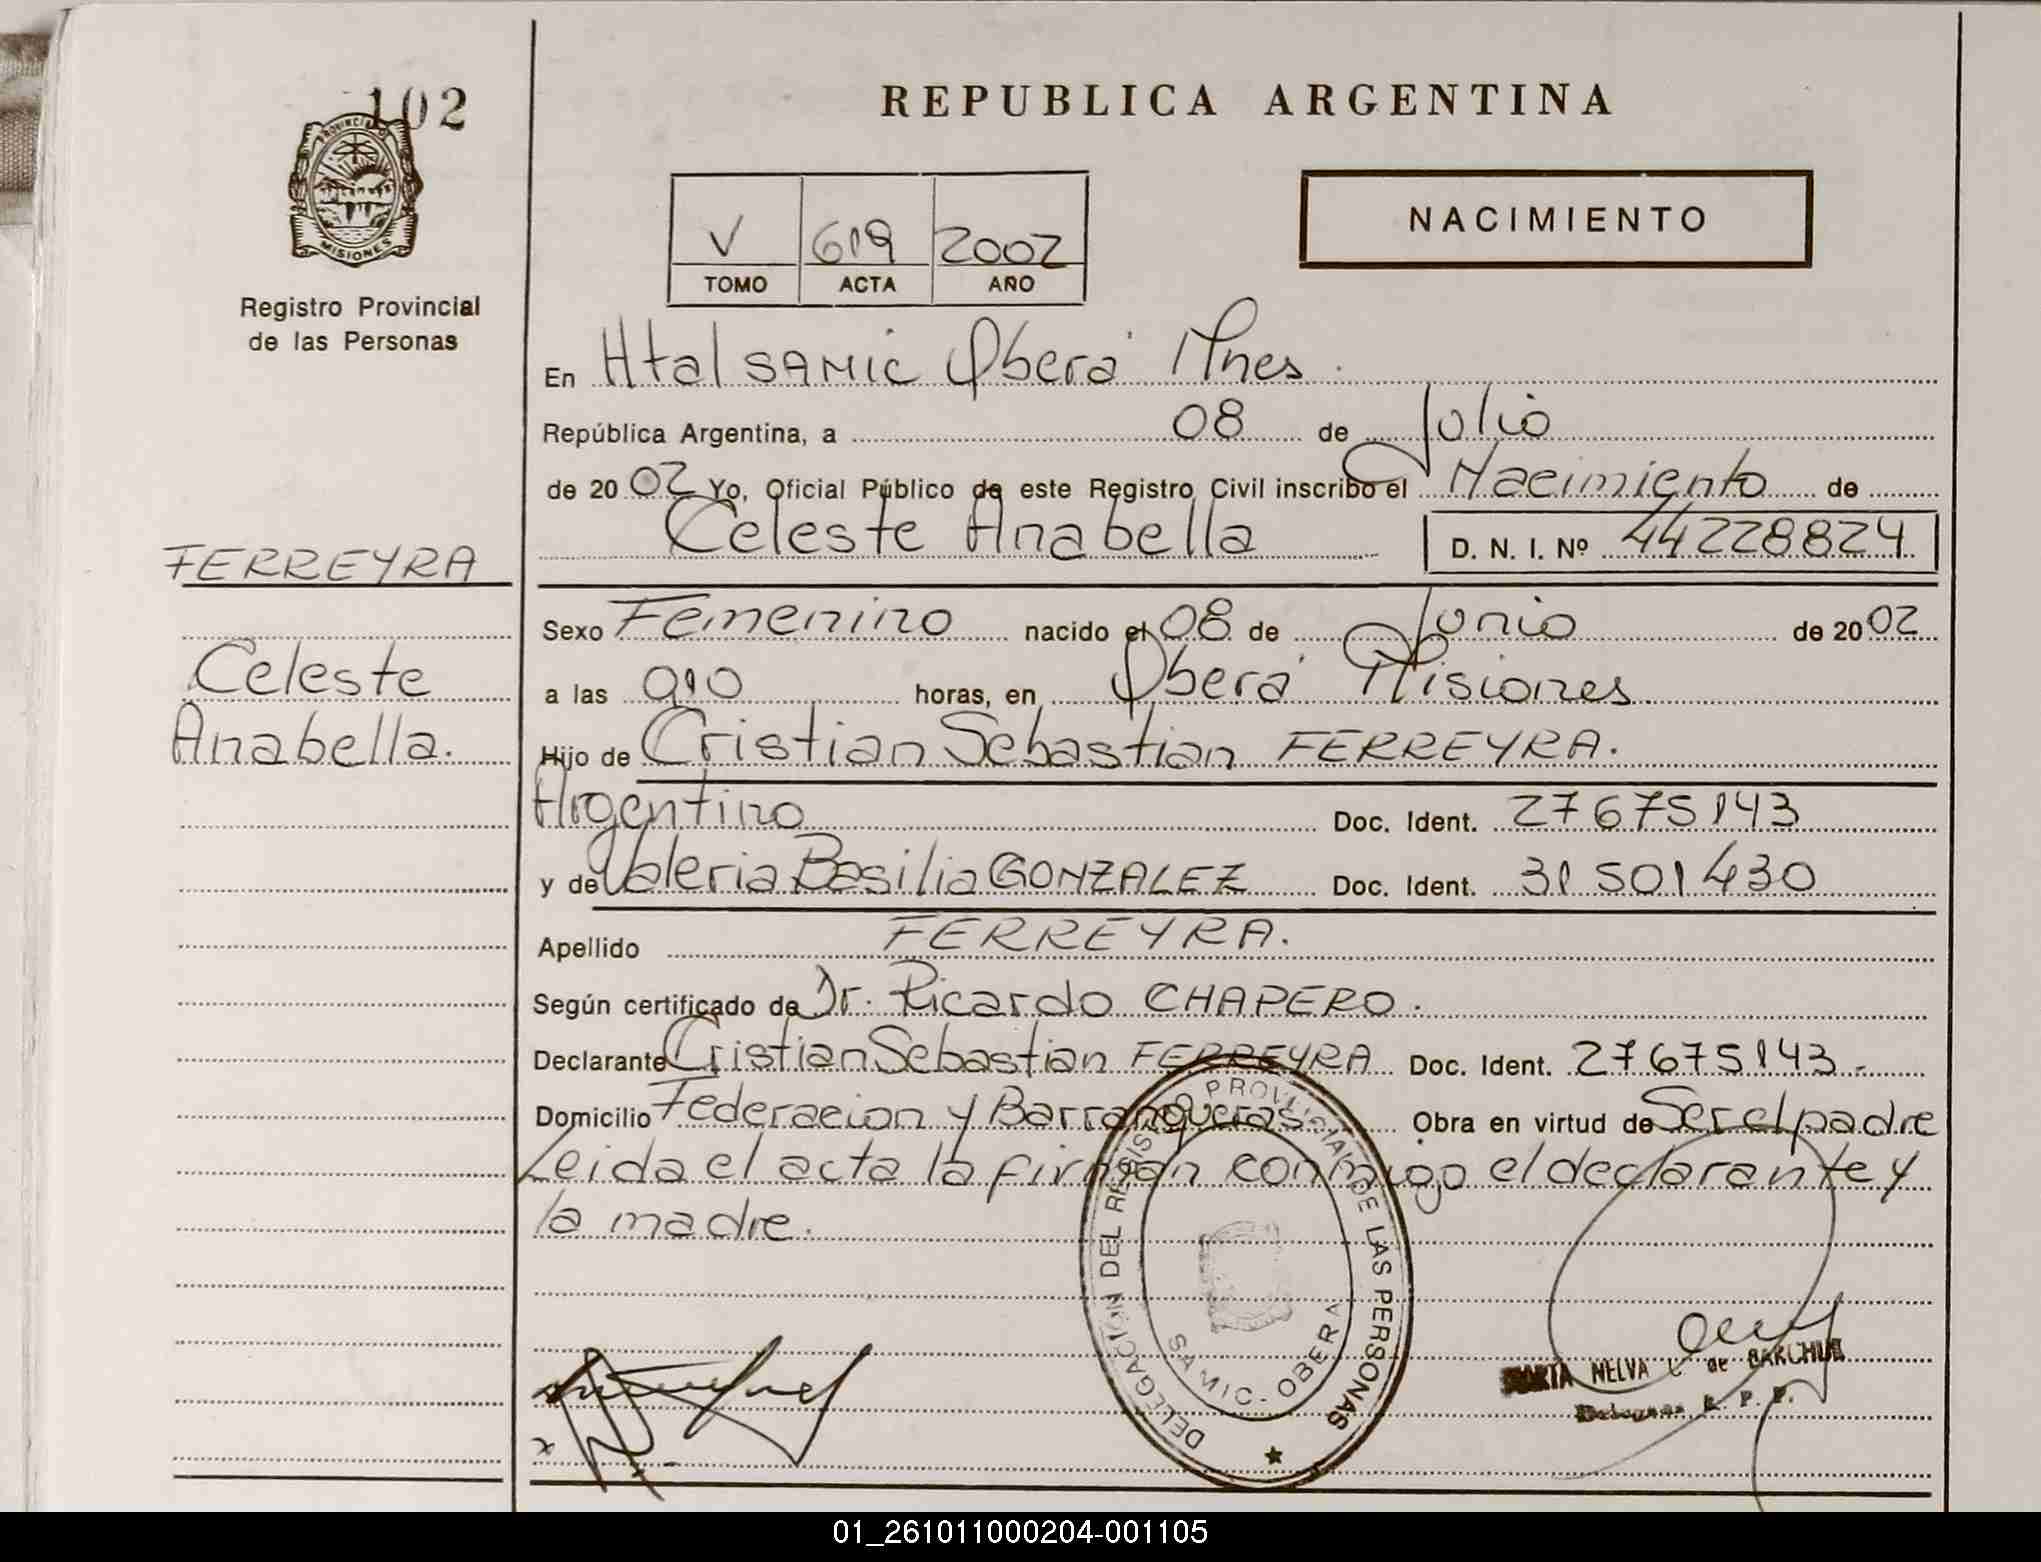 102
REPUBLICA ARGENTINA
PROVINCIA DE MISIONES
V 619 2002
TOMO ACTA AÑO
NACIMIENTO
Registro Provincial
de las Personas
En Htal SAMIC Oberá Mnes.
República Argentina, a 08 de Julio
de 2002 Yo, Oficial Público de este Registro Civil inscribo el Nacimiento de
Celeste Anabella D. N. I. Nº 44228824
FERREYRA
Celeste
Anabella.
Sexo Femenino nacido el 08 de Junio de 2002
a las horas, en Oberá Misiones
Hijo de Cristian Sebastian FERREYRA.
Argentino Doc. Ident. 27675143
y de Valeria Basilia GONZALEZ Doc. Ident. 31501430
Apellido FERREYRA.
Según certificado de Dr. Ricardo CHAPERO.
Declarante Cristian Sebastian FERREYRA Doc. Ident. 27675143.-
Domicilio Federacion y Barranqueras Obra en virtud de Ser el padre
Leida el acta la firman conmigo el declarante y
la madre.
DELEGACIÓN DEL REGISTRO PROVINCIAL DE LAS PERSONAS
SAMIC - OBERA
NELVA de
R. P. P.
01_261011000204-001105